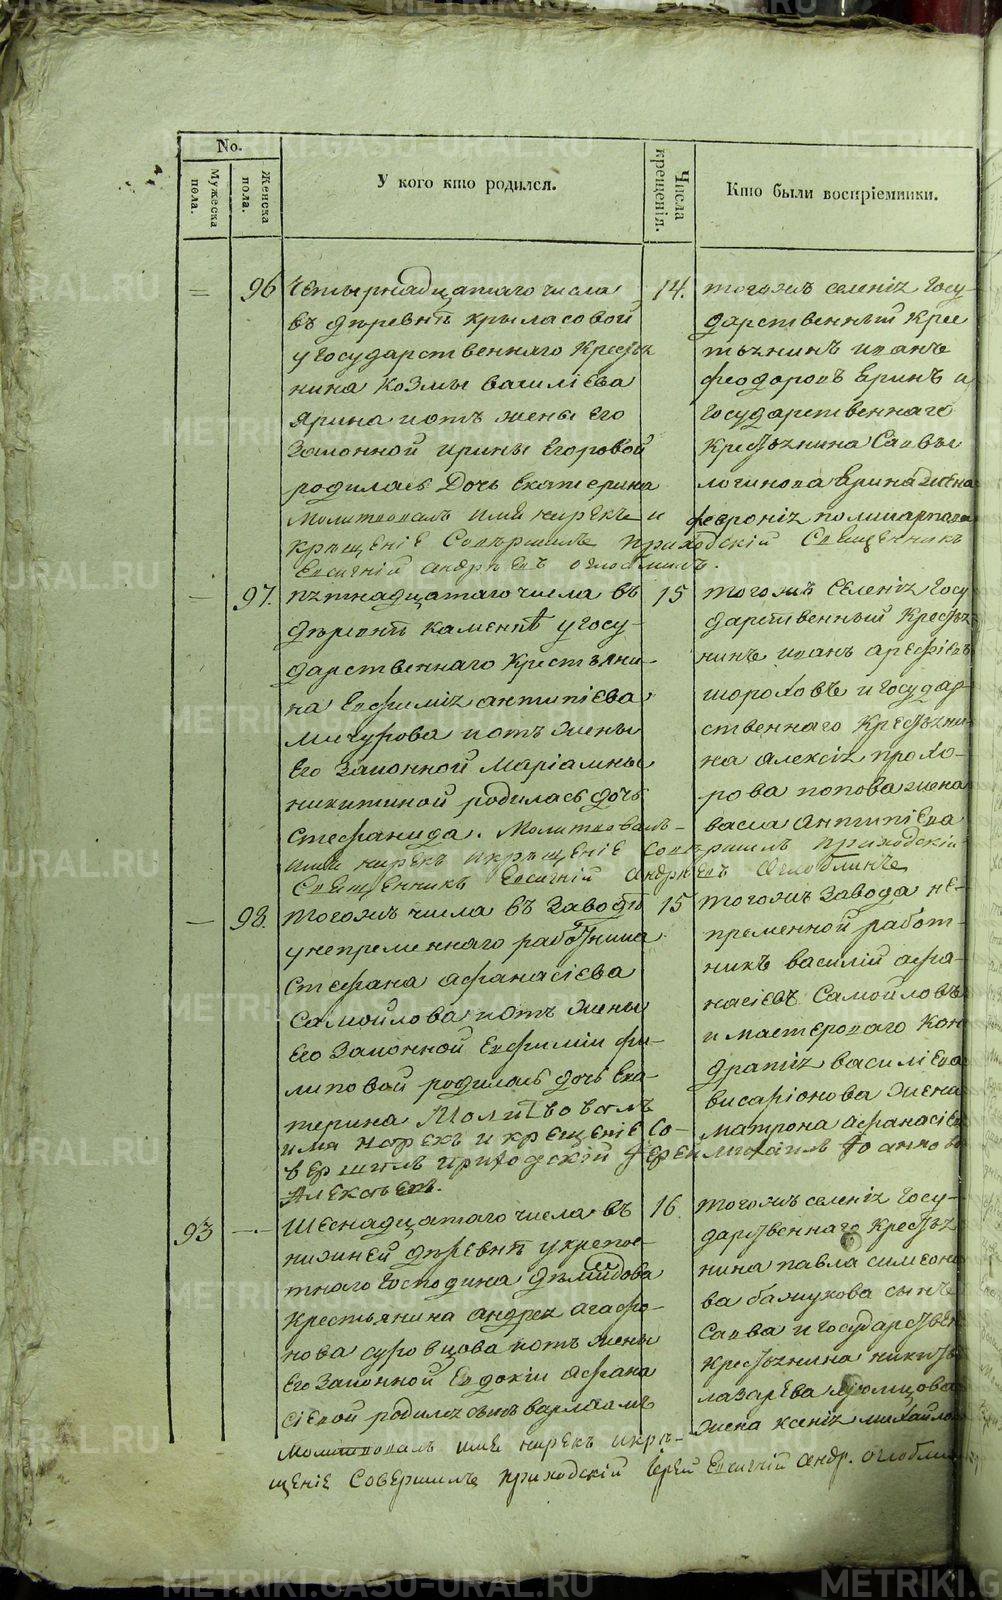 No.
Мужеска пола.
Женска пола.
У кого кто родился.
Числа крещенія.
Кто были воспріемники.
96
Четырнадцатаго числа
въ деревнѣ крыласовой
у государственнаго Кресть
нина Козмы василіева
Ярина и отъ жены Его
Законной ирины Егоровой
родилась Дочь Екатерина
Молитвовалъ имя нарекъ и
крещеніе Совершилъ приходскій Священникъ
Евсигній андреевъ оглоблинъ.
14.
тогожъ селенія Госу-
дарственный Крес
тьянинъ иванъ
феодоровъ Яринъ и
Государственнаго
Крестьянина Саввы
логинова Ярина жена
февронія поликарпова
97.
пятнадцатаго числа въ
деревнѣ каменкѣ у госу-
дарственнаго Крестьяни-
на Евфимія антипіева
Мичурова и отъ жены
Его Законной Маріамны
никитиной родилась дочь
Стефанида. Молитвовалъ
имя нарекъ и крещеніе Совершилъ приходскій
Священникъ Евсигній Андреевъ Оглоблинъ
15
тогожъ Селенія Госу
дарственный Крестья
нинъ иванъ арефіевъ
шороховъ и государ-
ственнаго Крестьяни-
на алексія прохо-
рова попова жена
васса Антипіева
98.
тогожъ числа въ Заводѣ
у непременнаго работника
Стефана афанасіева
Самойлова и отъ жены
Его Законной Евфиміи фи-
липовой родилась дочь Ека-
терина Молитвовалъ
имя нарекъ и крещеніе Со-
вершилъ приходскій Іерей михаилъ Іоанновъ
Алексеевъ.
15
тогожъ Завода не-
пременной работ-
никъ василій афа-
насіевъ Самойловъ
и мастероваго Кон
дратія василіева
висаріонова жена
матрона афанасіев
93
Шеснадцатаго числа въ
нижней деревнѣ у крепос-
тнаго Господина Демидова
Крестьянина андрея агафо-
нова суровцова и отъ жены
Его Законной Евдокіи Афана
сіевой родился сынъ варлаамъ
Молитвовалъ имя нарекъ и кре-
щеніе Совершилъ приходскій Іерей Евсигній андр. оглоблин
16.
тогожъ селенія Госу-
дарственнаго крестья
нина павла симеоно
ва башукова сынъ
Савва и государствен
крестьянина никиты
лазарева
жена ксенія михайло
METRIKI.GASU-URAL.RU